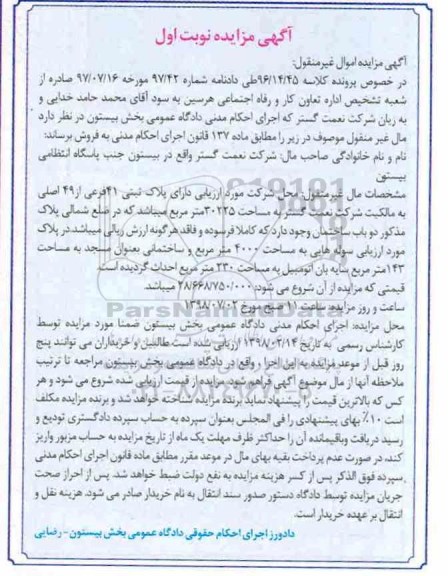 آگهی مزایده نوبت اول
آگهی مزایده اموال غیرمنقول:
در خصوص پرونده کلاسه ۹۶/۱۴/۴۵طی دادنامه شماره ۹۷/۴۲ مورخه ۹۷/۰۷/۱۶ صادره از
شعبه تشخیص اداره تعاون کار و رفاه اجتماعی هرسین به سود آقای محمد حامد خدایی و
به زیان شرکت نعمت گستر که اجرای احکام مدنی دادگاه عمومی بخش بیستون در نظر دارد
مال غیر منقول موصوف در زیر را مطابق ماده ۱۳۷ قانون اجرای احکام مدنی به فروش برساند:
نام و نام خانوادگی صاحب مال: شرکت نعمت گستر واقع در بیستون جنب پاسگاه انتظامی
بیستون
مشخصات مال غیرمنقول: محل شرکت مورد ارزیابی دارای پلاک ثبتی ۴۱فرعی از۴۹ اصلی
به مالکیت شرکت نعمت گستر به مساحت ۳۰۲۲۵متر مربع میباشد که در ضلع شمالی پلاک
مذکور دو باب ساختمان وجود دارد که کاملا فرسوده و فاقد هرگونه ارزش ریالی میباشد.در پلاک
مورد ارزیابی سوله هایی به مساحت ۴۰۰۰ متر مربع و ساختمانی بعنوان مسجد به مساحت
۱۴۳متر مربع سایه بان اتومبیل به مساحت ۲۳۰ متر مربع احداث گردیده است.
قیمتی که مزایده از آن شروع می شود: ۲۸/۶۶۸/۷۵۰/۰۰۰ میباشد.
ساعت و روز مزایده: ساعت ۱۱ صبح مورخ ۱۳۹۸/۰۷/۰۲
محل مزایده: اجرای احکام مدنی دادگاه عمومی بخش بیستون ضمنا مورد مزایده توسط
کارشناس رسمی به تاریخ ۱۳۹۸/۰۳/۱۴ ارزیابی شده است طالبین و خریداران می توانند پنج
روز قبل از موعد مزایده به این اجرا واقع در دادگاه عمومی بخش بیستون مراجعه تا ترتیب
ملاحظه آنها از مال موضوع آگهی فراهم شود. مزایده از قیمت ارزیابی شده شروع می شود و هر
کس که بالاترین قیمت را پیشنهاد نماید برنده مزایده شناخته خواهد شد و برنده مزایده مکلف
است ۱۰٪ بهای پیشنهادی را فی المجلس بعنوان سپرده به حساب سپرده دادگستری تودیع و
رسید دریافت وباقیمانده آن را حداکثر ظرف مهلت یک ماه از تاریخ مزایده به حساب مزبور واریز
کند، در صورت عدم پرداخت بقیه بهای مال در موعد مقرر مطابق ماده قانون اجرای احکام مدنی
سپرده فوق الذکر پس از کسر هزینه مزایده به نفع دولت ضبط خواهد شد. پس از احراز صحت
جریان مزایده توسط دادگاه دستور صدور سند انتقال به نام خریدار صادر می شود. هزینه نقل و
انتقال بر عهده خریدار است.
دادورز اجرای احکام حقوقی دادگاه عمومی بخش بیستون - رضایی